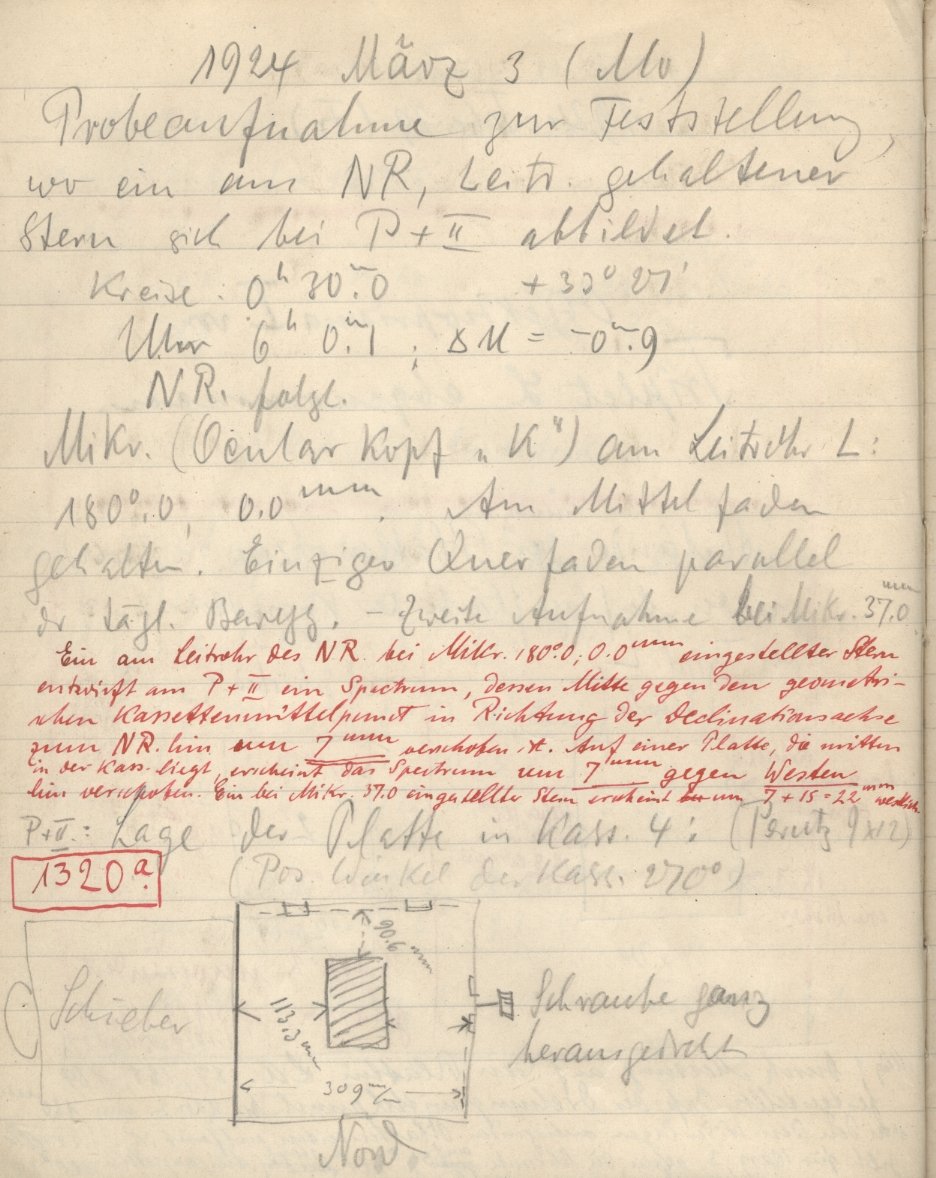 1924 März 3 (Mo)
Probeaufnahme zur Feststellung,
wo ein am NR, Leitr. gehaltener
Stern sich bei P+II abbildet.
Kreise: 0h 30m.0 +33° 27'
Uhr 6h 0m.1 ; ΔU = -0m.9
NR. folgt.
Mikr. (Ocularkopf „K") am Leitrohr L:
180°.0, 0.0mm. Am Mittelfaden
gehalten. Einziger Querfaden parallel
dr tägl. Bewegg. - Zweite Aufnahme bei Mikr. 37.0mm
Ein am Leitrohr des NR. bei Mikr. 180°.0, 0.0mm eingestellter Stern
entwirft am P+II ein Spectrum, dessen Mitte gegen den geometri-
schen Kassettenmittelpunct in Richtung der Declinationsachse
zum NR. hin um 7mm verschoben ist. Auf einer Platte, die mitten
in der Kass. liegt, erscheint das Spectrum um 7mm gegen Westen
hin verschoben. Ein bei Mikr. 37.0 eingestellter Stern erscheint um 7+15=22mm westlich
P+II: Lage der Platte in Kass. 4: (Perutz 9x12)
1320a.
(Pos. Winkel der Kass. 270°)
90.6mm
Schieber
113.3mm
Schraube ganz
herausgedreht
309m/m
Nord